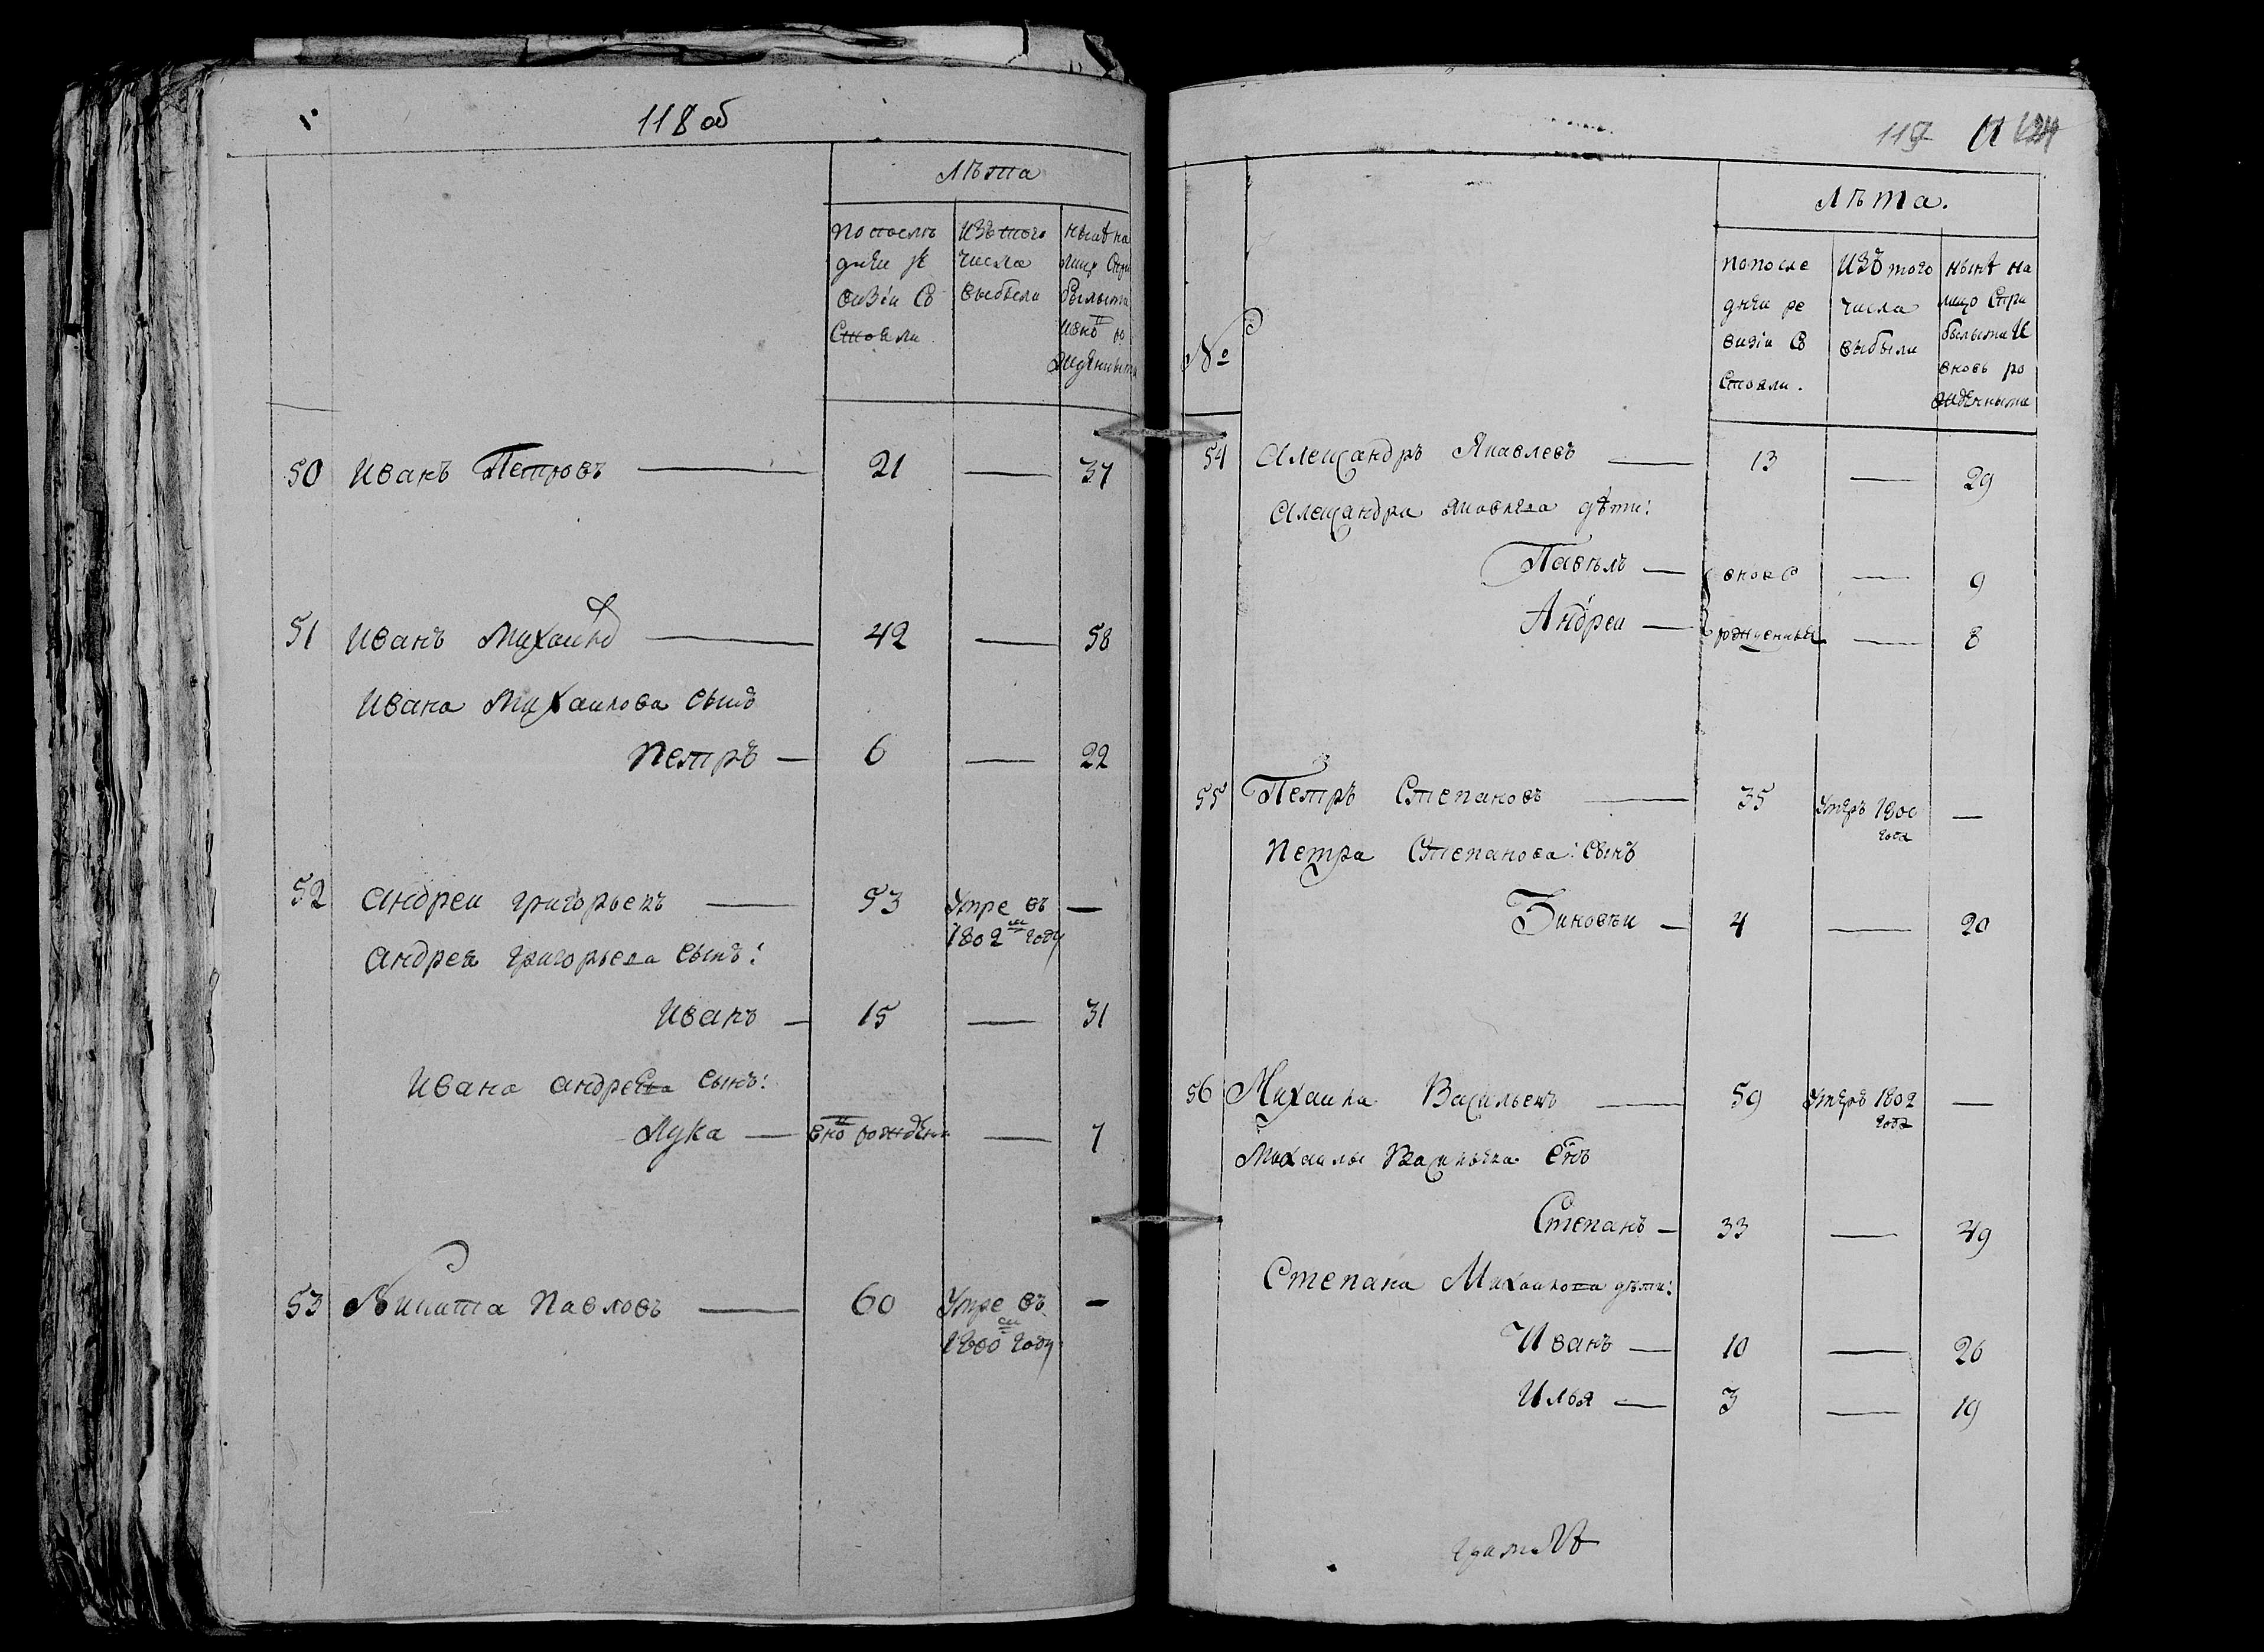 118 об
Лѣта
По послѣ
дней ре
визіи со
стояли
Изъ того
числа
выбыли
50 Иванъ Петровъ 21 — 37
51 Иванъ Михаило 42 — 58
Ивана Михаилова сынъ
Петръ — 6 — 22
52 Андреи Григорьевъ 53 Умре въ —
1802м году
Андрея Григорьева сынъ:
Иванъ — 15 — 31
Ивана Андреева сынъ:
Лука — вно рожденъ — 7
53 Никита Павловъ 60 Умре въ —
1800м году
119
Лѣта.
№
попосле
дней ре
визіи со
стояли.
Изъ того
числа
выбыли
нынѣ на
лицо спри
былыми и
вновь ро
жденными
54 Александръ Яковлевъ 13 — 29
Александра Яковлева дѣти:
Павелъ — вновь — 9
Андреи — рожденные — 8
55 Петръ Степановъ 35 Умеръ 1800 —
года
Петра Степанова: сынъ
Зиновѣи — 4 — 20
56 Михаила Васильевъ 59 Умеръ 1802 —
года
Михаилы Васильева снъ
Степанъ — 33 — 49
Степана Михаилова дѣти:
Иванъ — 10 — 26
Илья — 3 — 19